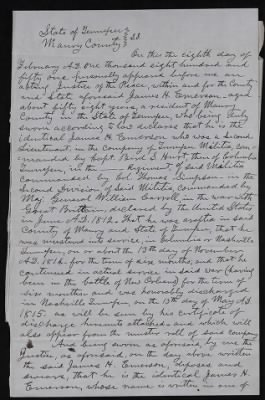 State of Tennessee
Maury County } SS
On this the eighth day of
February A.D. one thousand eight hundred and
fifty one personally appeared before me an
acting Justice of the Peace, within and for the County
and State aforesaid James H. Emerson aged
about fifty eight years, a resident of Maury
County in the State of Tennessee, who being duly
sworn according to law declares that he is the
identical James H. Emerson who was a Second
Lieutenant in the company of Tennessee Militia, com-
manded by Capt. then of Columbia
Tennessee, in the Regiment of said Militia
Commanded by Col. in the
Second Division of Said Militia, Commanded by
Maj General William Carroll, in the war with
Great Britain, declared by the United States
in June A.D. 1812. That he was in said
County of Maury and State of Tennessee, that he
was mustered into service, in Columbia or Nashville
Tennessee, on or about the 13th day of November
A.D. 1814 for the term of six months, and that he
continued in actual service in said war (having
been in the battle of New Orleans) for the term of
six months and was honorably discharged
in Nashville Tennessee, on the 13th day of May A.D
1815. as will be seen by his certificate of
discharge hereunto attached and which will
also appear from the muster roll of said company
And being sworn as aforesaid, by me the
Justice, as aforesaid, on the day above written
the said James H. Emerson, deposes and
swears, that he is the identical James H.
Emerson, whose name is written in one of